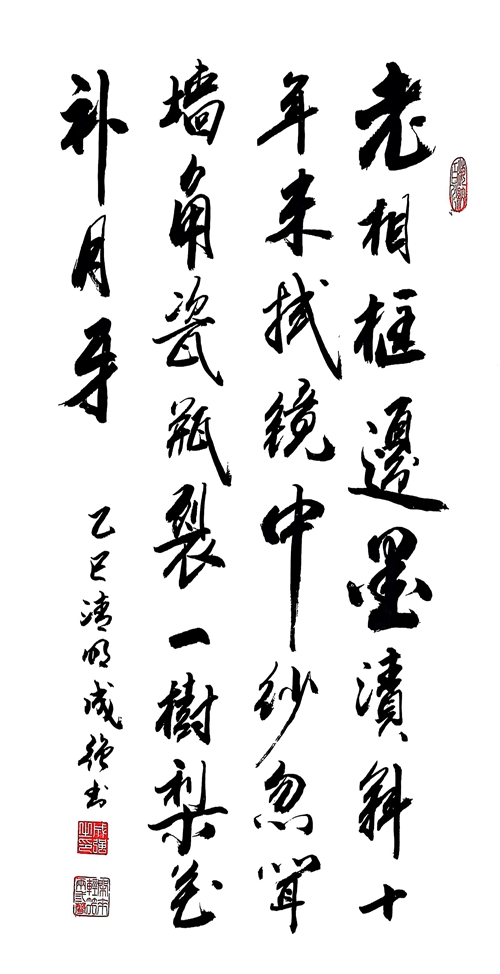 老相框邊墨漬斜十
年未拭鏡中紗忽聞
墙角瓷瓶裂一樹梨花
补月牙
乙巳清明成強书